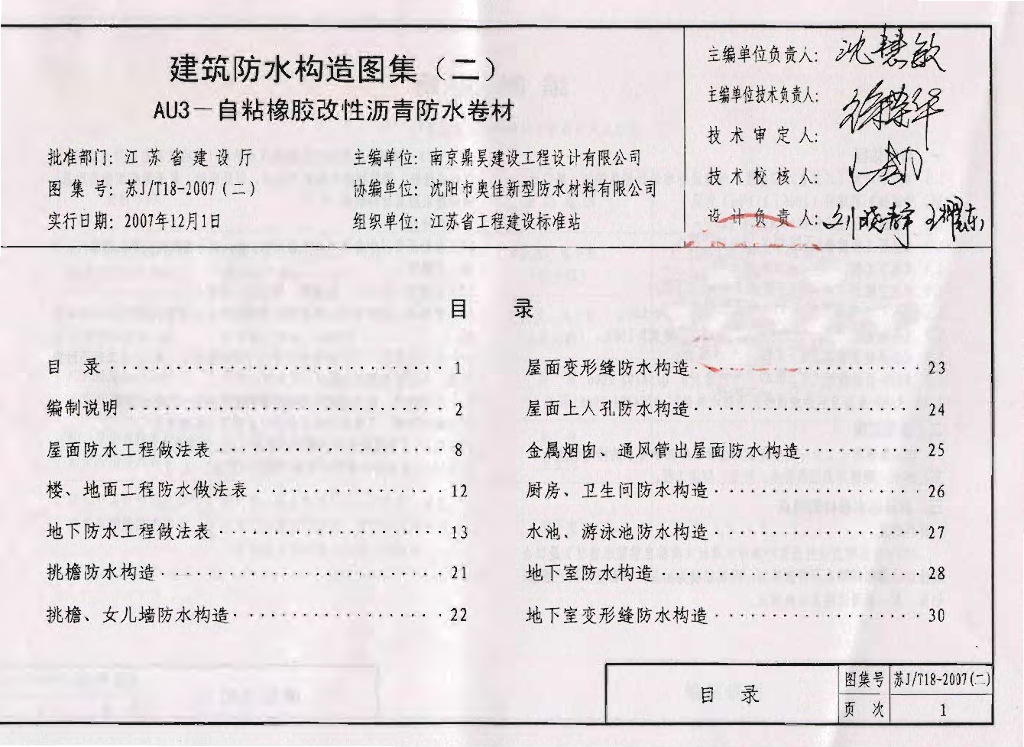 建筑防水构造图集(二)
AU3－自粘橡胶改性沥青防水卷材
批准部门: 江苏省建设厅
主编单位: 南京鼎昊建设工程设计有限公司
图集号: 苏J/T18-2007(二)
协编单位: 沈阳市奥佳新型防水材料有限公司
实行日期: 2007年12月1日
组织单位: 江苏省工程建设标准站
主编单位负责人: 沈慧敏
主编单位技术负责人:
技术审定人:
技术校核人:
设计负责人: 刘晓静 王耀东
目 录
目 录 1
编制说明 2
屋面防水工程做法表 8
楼、地面工程防水做法表 12
地下防水工程做法表 13
挑檐防水构造 21
挑檐、女儿墙防水构造 22
屋面变形缝防水构造 23
屋面上人孔防水构造 24
金属烟囱、通风管出屋面防水构造 25
厨房、卫生间防水构造 26
水池、游泳池防水构造 27
地下室防水构造 28
地下室变形缝防水构造 30
目 录
图集号 苏J/T18-2007(二)
页 次 1